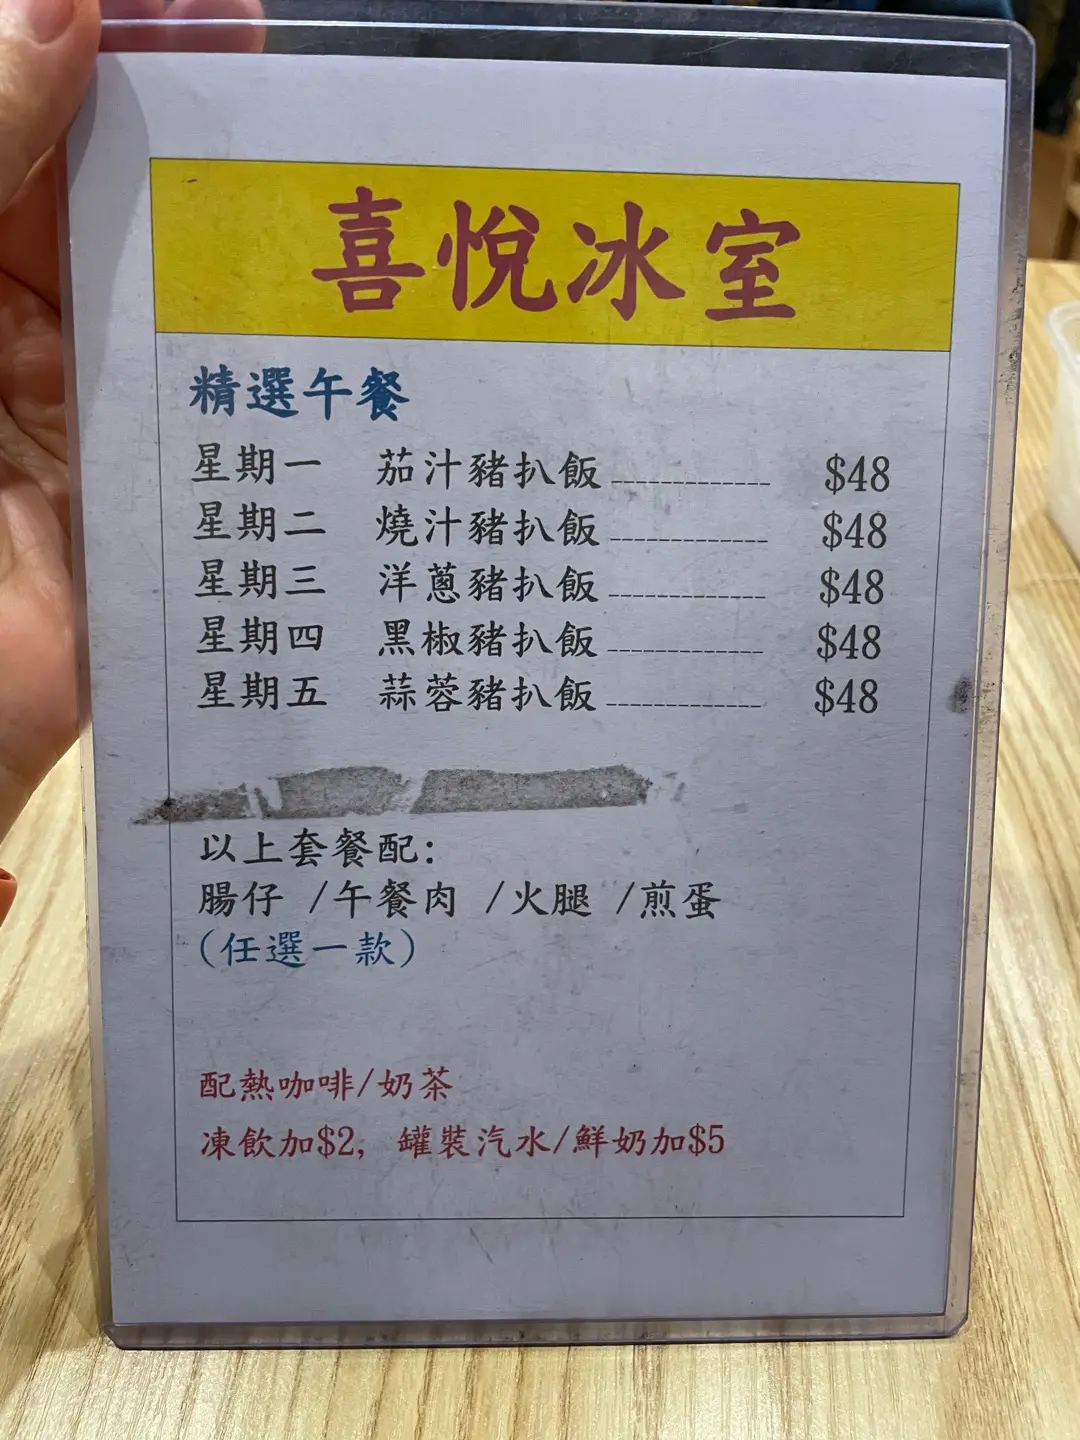 喜悅冰室
精選午餐
星期一 茄汁豬扒飯 $48
星期二 燒汁豬扒飯 $48
星期三 洋蔥豬扒飯 $48
星期四 黑椒豬扒飯 $48
星期五 蒜蓉豬扒飯 $48
以上套餐配:
腸仔 /午餐肉 /火腿 /煎蛋
(任選一款)
配熱咖啡/奶茶
凍飲加$2, 罐裝汽水/鮮奶加$5